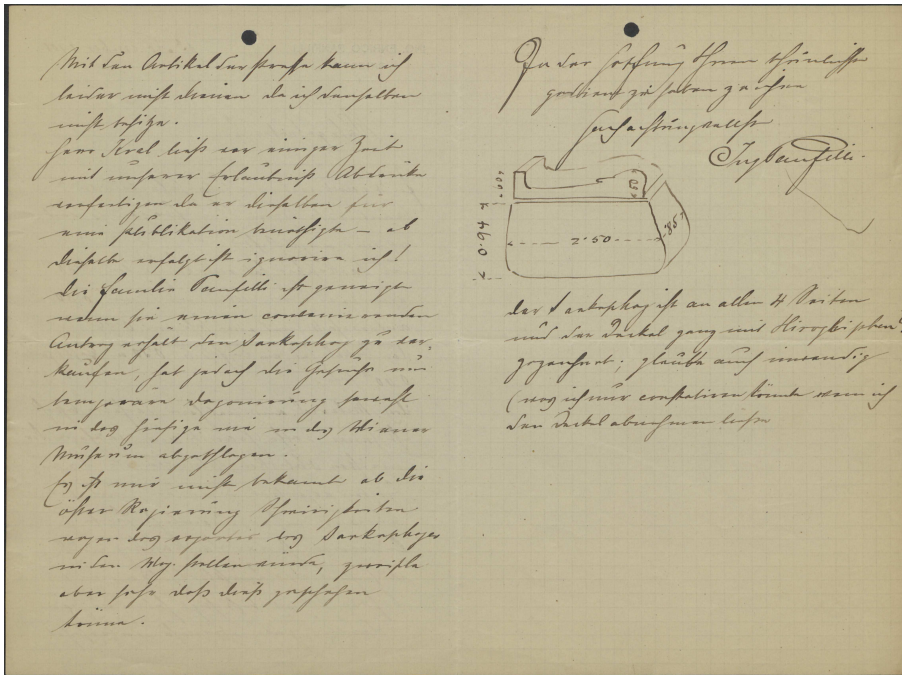 Mit den Artikel der Presse kann ich
leider nicht dienen da ich denselben
nicht besitze.
Herr Kral ließ vor einiger Zeit
mit unserer Erlaubniß Abdrücke
verfertigen da er dieselben für
eine Publikation benöthigte – ob
dieselbe erfolgt ist ignorire ich!
Die Familie Panfilli ist geneigt
wenn sie einen convenierenden
Antrag erhält den Sarkophag zu ver-
kaufen, hat jedoch die Gesuche um
temporäre Deponierung sowohl
in das hiesige wie in das Wiener
Museum abgeschlagen.
Es ist mir nicht bekannt ob die
öster Regierung Schwierigkeiten
wegen des exportes des Sarkophages
in den Weg stellen würde, zweifle
aber sehr daß dieß geschehen
könne.
In der Hoffnung Ihnen thunlichst
gedient zu haben zeichne
Hochachtungsvollst
Ing Panfilli
0.94
2.50
Der Sarkophag ist an allen 4 Seiten
und der Deckel ganz mit Hieroglyphen
gezeichnet; glaube auch inwendig
(was ich nur constatiren könnte wenn ich
den Deckel abnehmen ließe